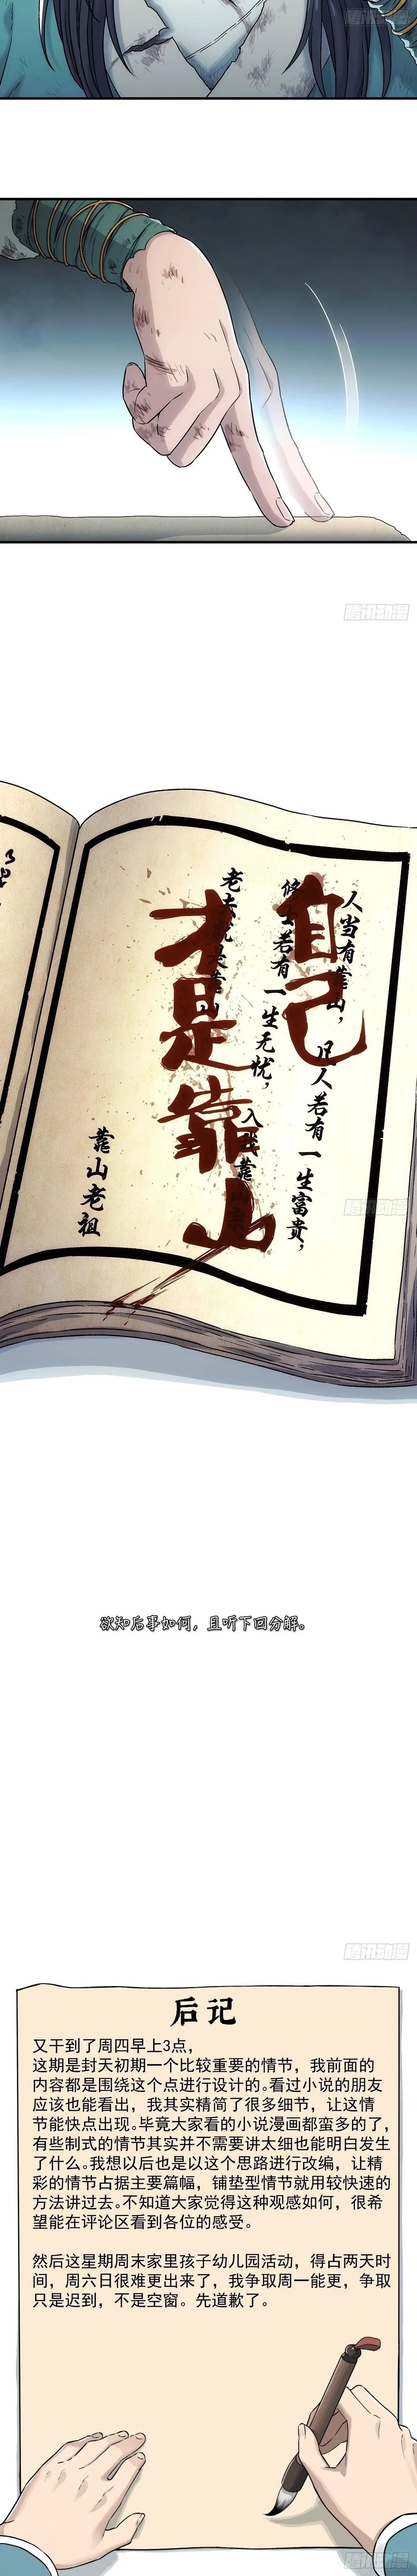 腾讯动漫
腾讯动漫
人当有靠山，凡人若有一生富贵，
修士若有一生无忧，入我靠山宗
老夫就是靠山
靠山老祖
自己
才是靠山
腾讯动漫
欲知后事如何，且听下回分解。
腾讯动漫
后记
又干到了周四早上3点，
这期是封天初期一个比较重要的情节，我前面的
内容都是围绕这个点进行设计的。看过小说的朋友
应该也能看出，我其实精简了很多细节，让这情
节能快点出现。毕竟大家看的小说漫画都蛮多的了，
有些制式的情节其实并不需要讲太细也能明白发生
了什么。我想以后也是以这个思路进行改编，让精
彩的情节占据主要篇幅，铺垫型情节就用较快速的
方法讲过去。不知道大家觉得这种观感如何，很希
望能在评论区看到各位的感受。
然后这星期周末家里孩子幼儿园活动，得占两天时
间，周六日很难更出来了，我争取周一能更，争取
只是迟到，不是空窗。先道歉了。